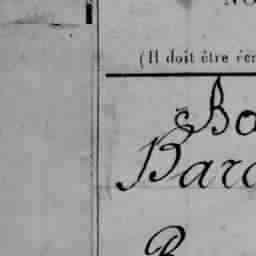 NO
(Il doit être
Bo
Bar
B